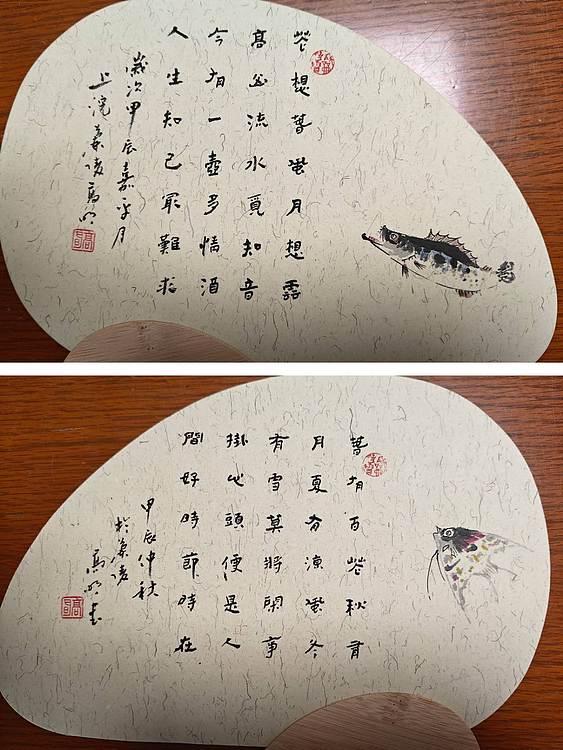 花想春風月想雲
高山流水覓知音
今有一壺多情酒
人生知己最難求
歲次甲辰嘉平月
上浣高明
春有百花秋有
月夏有涼風冬
有雪莫將閑事
掛心頭便是人
間好時節時在
甲辰仲秋
於高明書